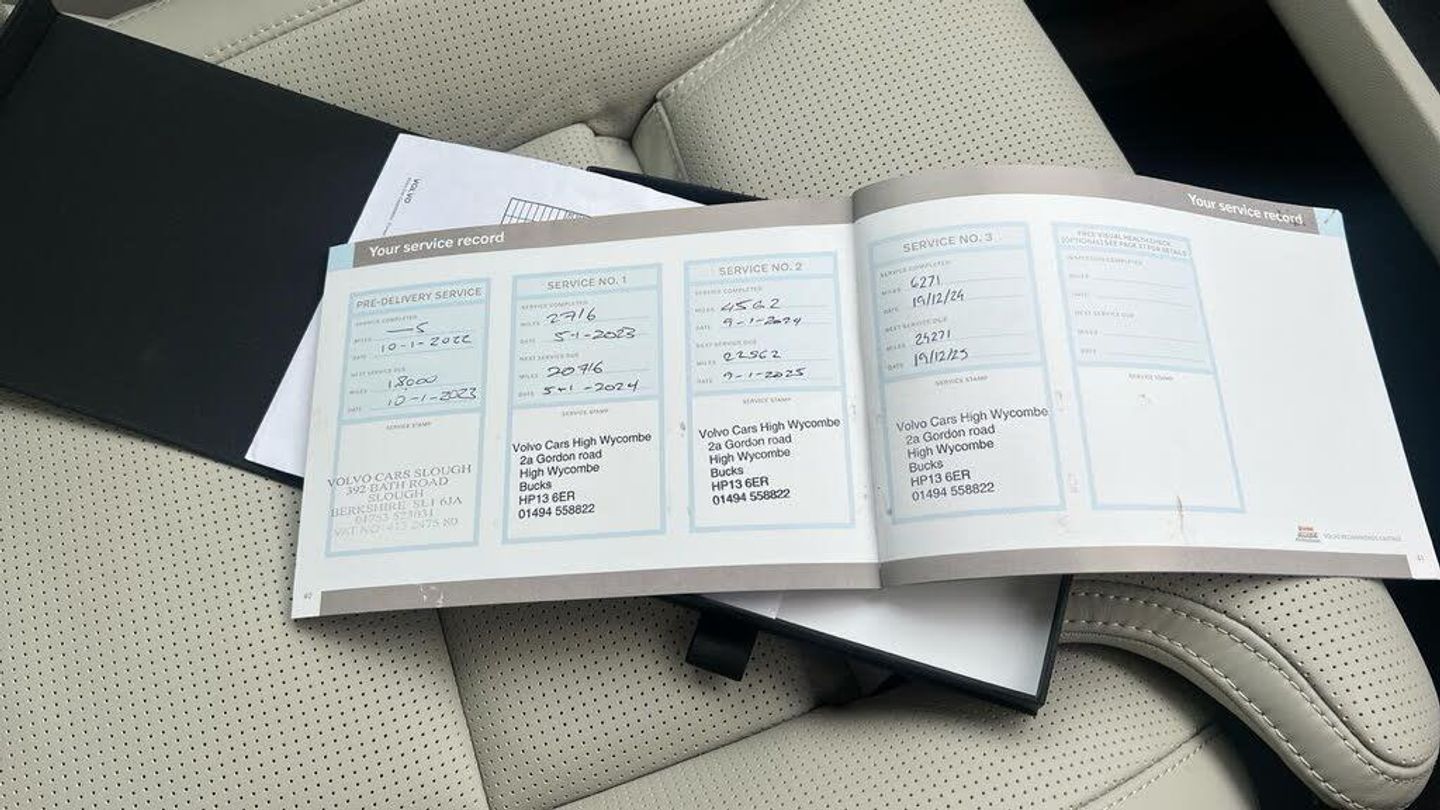 VOLVO
Your service record
PRE-DELIVERY SERVICE
SERVICE COMPLETED
MILES —5
DATE 10-1-2022
NEXT SERVICE DUE
MILES 18000
DATE 10-1-2023
SERVICE STAMP
VOLVO CARS SLOUGH
392 BATH ROAD
SLOUGH
BERKSHIRE SL1 6JA
VAT NO
40
SERVICE NO. 1
SERVICE COMPLETED
MILES 2716
DATE 5-1-2023
NEXT SERVICE DUE
MILES 20716
DATE 5-1-2024
SERVICE STAMP
Volvo Cars High Wycombe
2a Gordon road
High Wycombe
Bucks
HP13 6ER
01494 558822
SERVICE NO. 2
SERVICE COMPLETED
MILES 4562
DATE 9-1-2024
NEXT SERVICE DUE
MILES 22562
DATE 9-1-2025
SERVICE STAMP
Volvo Cars High Wycombe
2a Gordon road
High Wycombe
Bucks
HP13 6ER
01494 558822
Your service record
SERVICE NO. 3
SERVICE COMPLETED
MILES 6271
DATE 19/12/24
NEXT SERVICE DUE
MILES 24271
DATE 19/12/25
SERVICE STAMP
Volvo Cars High Wycombe
2a Gordon road
High Wycombe
Bucks
HP13 6ER
01494 558822
FREE VISUAL HEALTH CHECK
(OPTIONAL) SEE PAGE 37 FOR DETAILS
INSPECTION COMPLETED
MILES
DATE
NEXT SERVICE DUE
MILES
DATE
SERVICE STAMP
VOLVO RECOMMENDS CASTROL
41